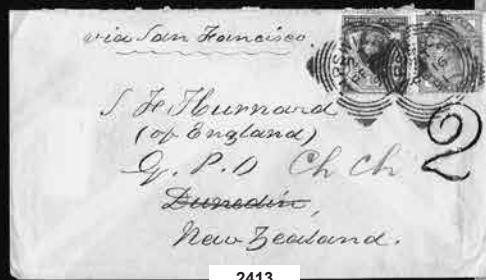 via San Francisco.
S F Hurnard
(of England)
G. P. O Ch Ch
2
Dunedin,
New Zealand.
2413